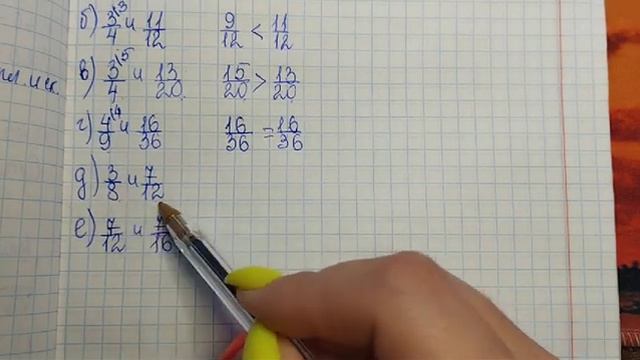 б) 3/4 \3 и 11/12 9/12 < 11/12
в) 3/4 \5 и 13/20 15/20 > 13/20
г) 4/9 \4 и 16/36 16/36 = 16/36
д) 3/8 и 7/12
е) 7/12 и 7/16